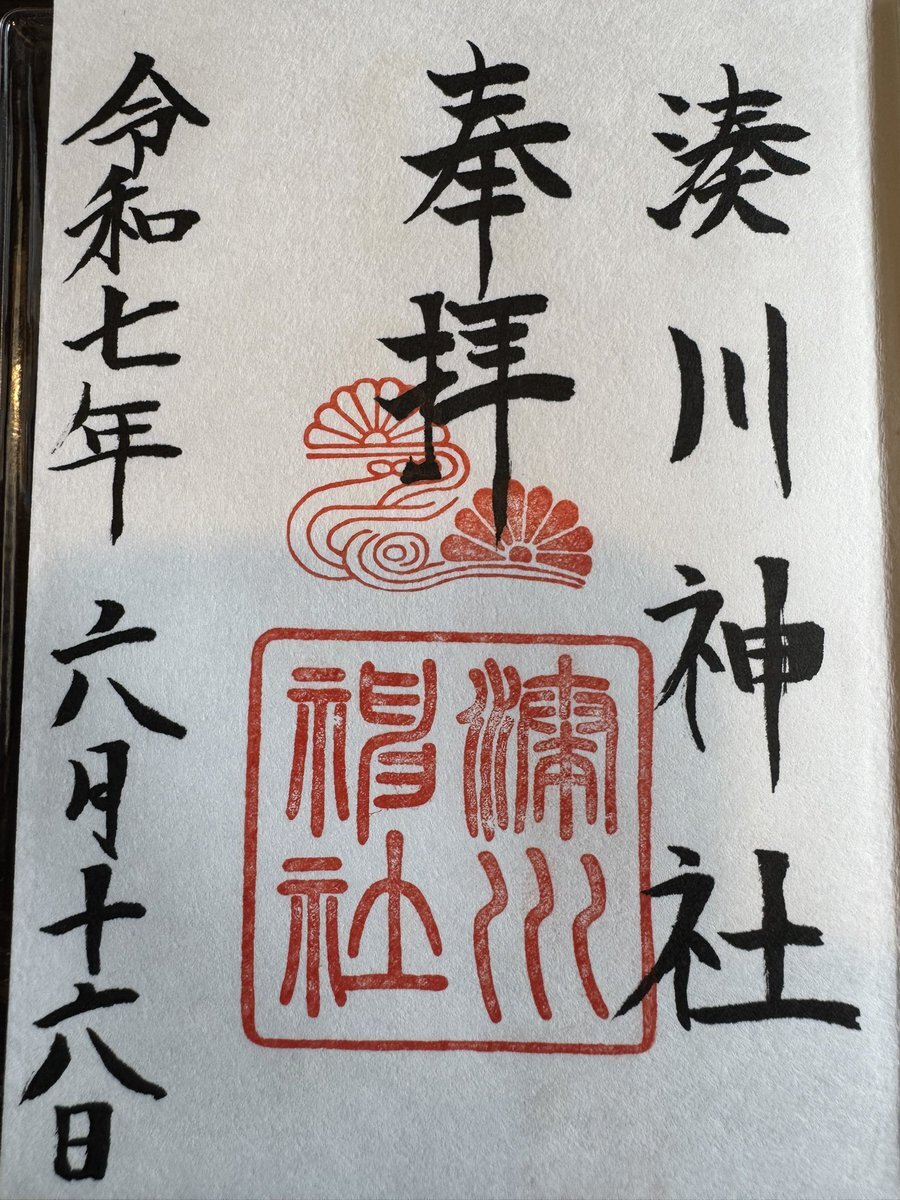 湊川神社
奉拝
湊川
神社
令和七年六月十六日